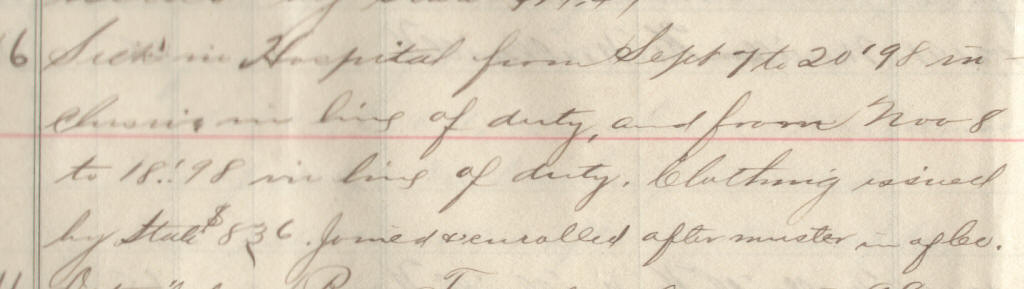 6 Sick in Hospital from Sept 7 to 20 '98 in-
clusive in line of duty, and from Nov 8
to 18. '98 in line of duty. Clothing issued
by State $8 36. Joined & enrolled after muster in of Co.